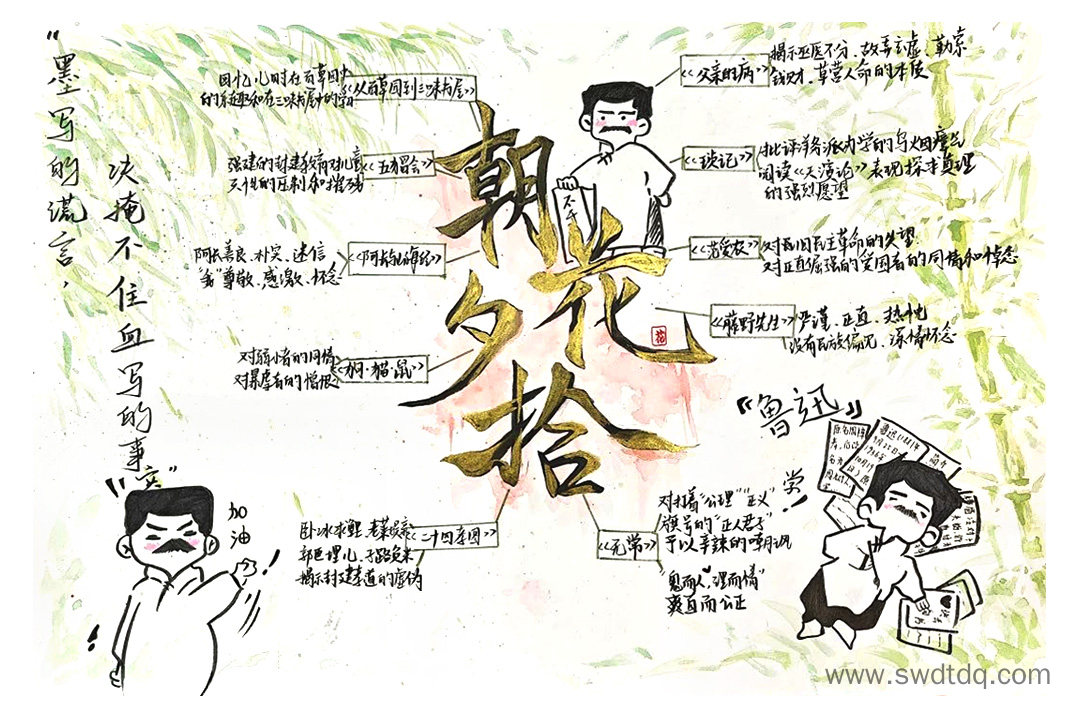 "墨写的谎言，
决掩不住血写的事实"
朝花夕拾
花
回忆儿时在百草园中
的乐趣和在三味书屋中的学习
《从百草园到三味书屋》
强烈的封建教育对儿童
天性的压制和摧残
《五猖会》
阿长善良、朴实、迷信
"我"尊敬、感激、怀念
《阿长与山海经》
对弱小者的同情
对暴虐者的憎恨
《狗·猫·鼠》
卧冰求鲤 老莱娱亲
郭巨埋儿、子路负米
揭示封建孝道的虚伪
《二十四孝图》
《父亲的病》
揭示巫医不分、故弄玄虚、勒索
钱财、草菅人命的本质
《琐记》
批评洋务派办学的乌烟瘴气
阅读《天演论》表现探求真理
的强烈愿望
《范爱农》
对旧民主革命的失望
对正直倔强的爱国者的同情和悼念
《藤野先生》
严谨、正直、热忱
没有民族偏见、深情怀念
《无常》
对打着"公理""正义"
旗号的"正人君子"
予以辛辣的嘲讽
"鬼而人，理而情"
爽直而公正
"鲁迅"
学！
加油
！
www.swdtdq.com